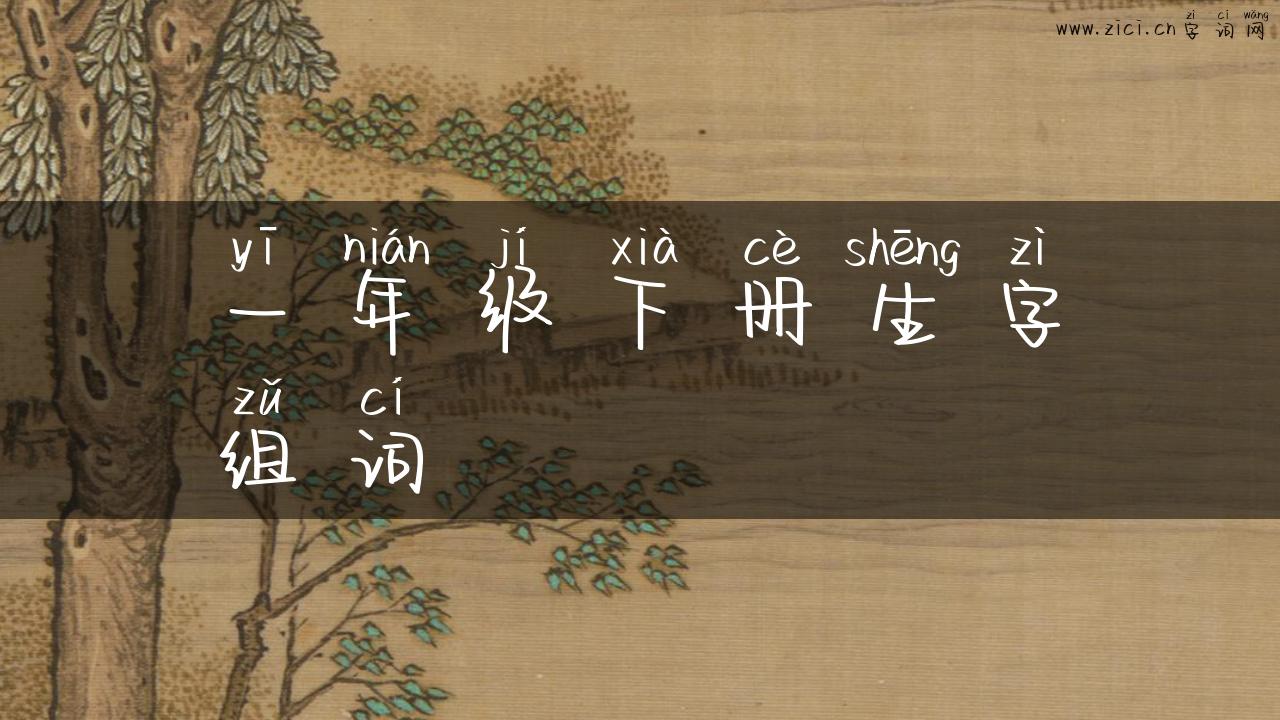 zì cí wǎng
www.zici.cn 字词网
yī nián jí xià cè shēng zì
一年级下册生字
zǔ cí
组词